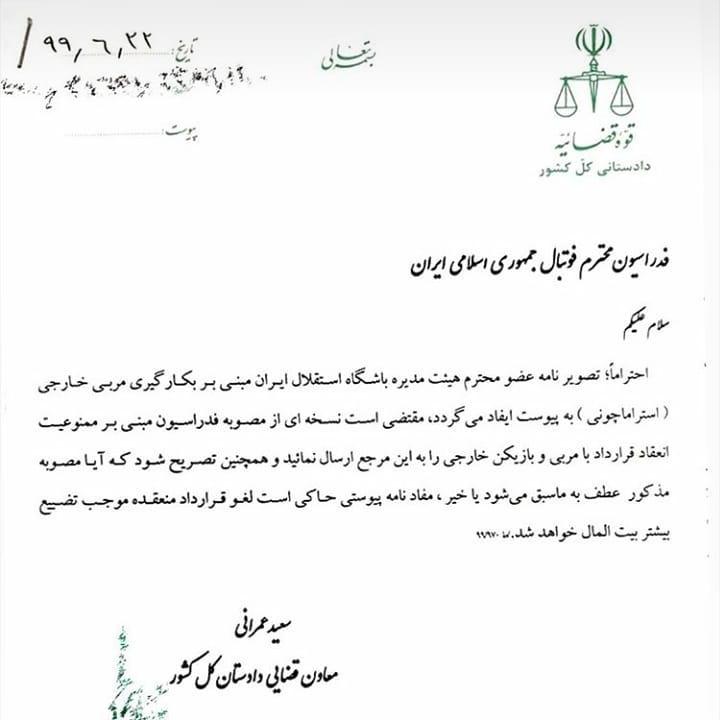 بسمه تعالی
تاریخ: ۹۹٫۶٫۲۲
پیوست:
قوهٔ قضائیه
دادستانی کل کشور
فدراسیون محترم فوتبال جمهوری اسلامی ایران
سلام علیکم
احتراماً؛ تصویر نامه عضو محترم هیئت مدیره باشگاه استقلال ایران مبنی بر بکارگیری مربی خارجی
( استراماچونی ) به پیوست ایفاد می‌گردد، مقتضی است نسخه ای از مصوبه فدراسیون مبنی بر ممنوعیت
انعقاد قرارداد با مربی و بازیکن خارجی را به این مرجع ارسال نمائید و همچنین تصریح شود که آیا مصوبه
مذکور عطف به ماسبق می‌شود یا خیر ، مفاد نامه پیوستی حاکی است لغو قرارداد منعقده موجب تضییع
بیشتر بیت المال خواهد شد.
سعید عمرانی
معاون قضایی دادستان کل کشور